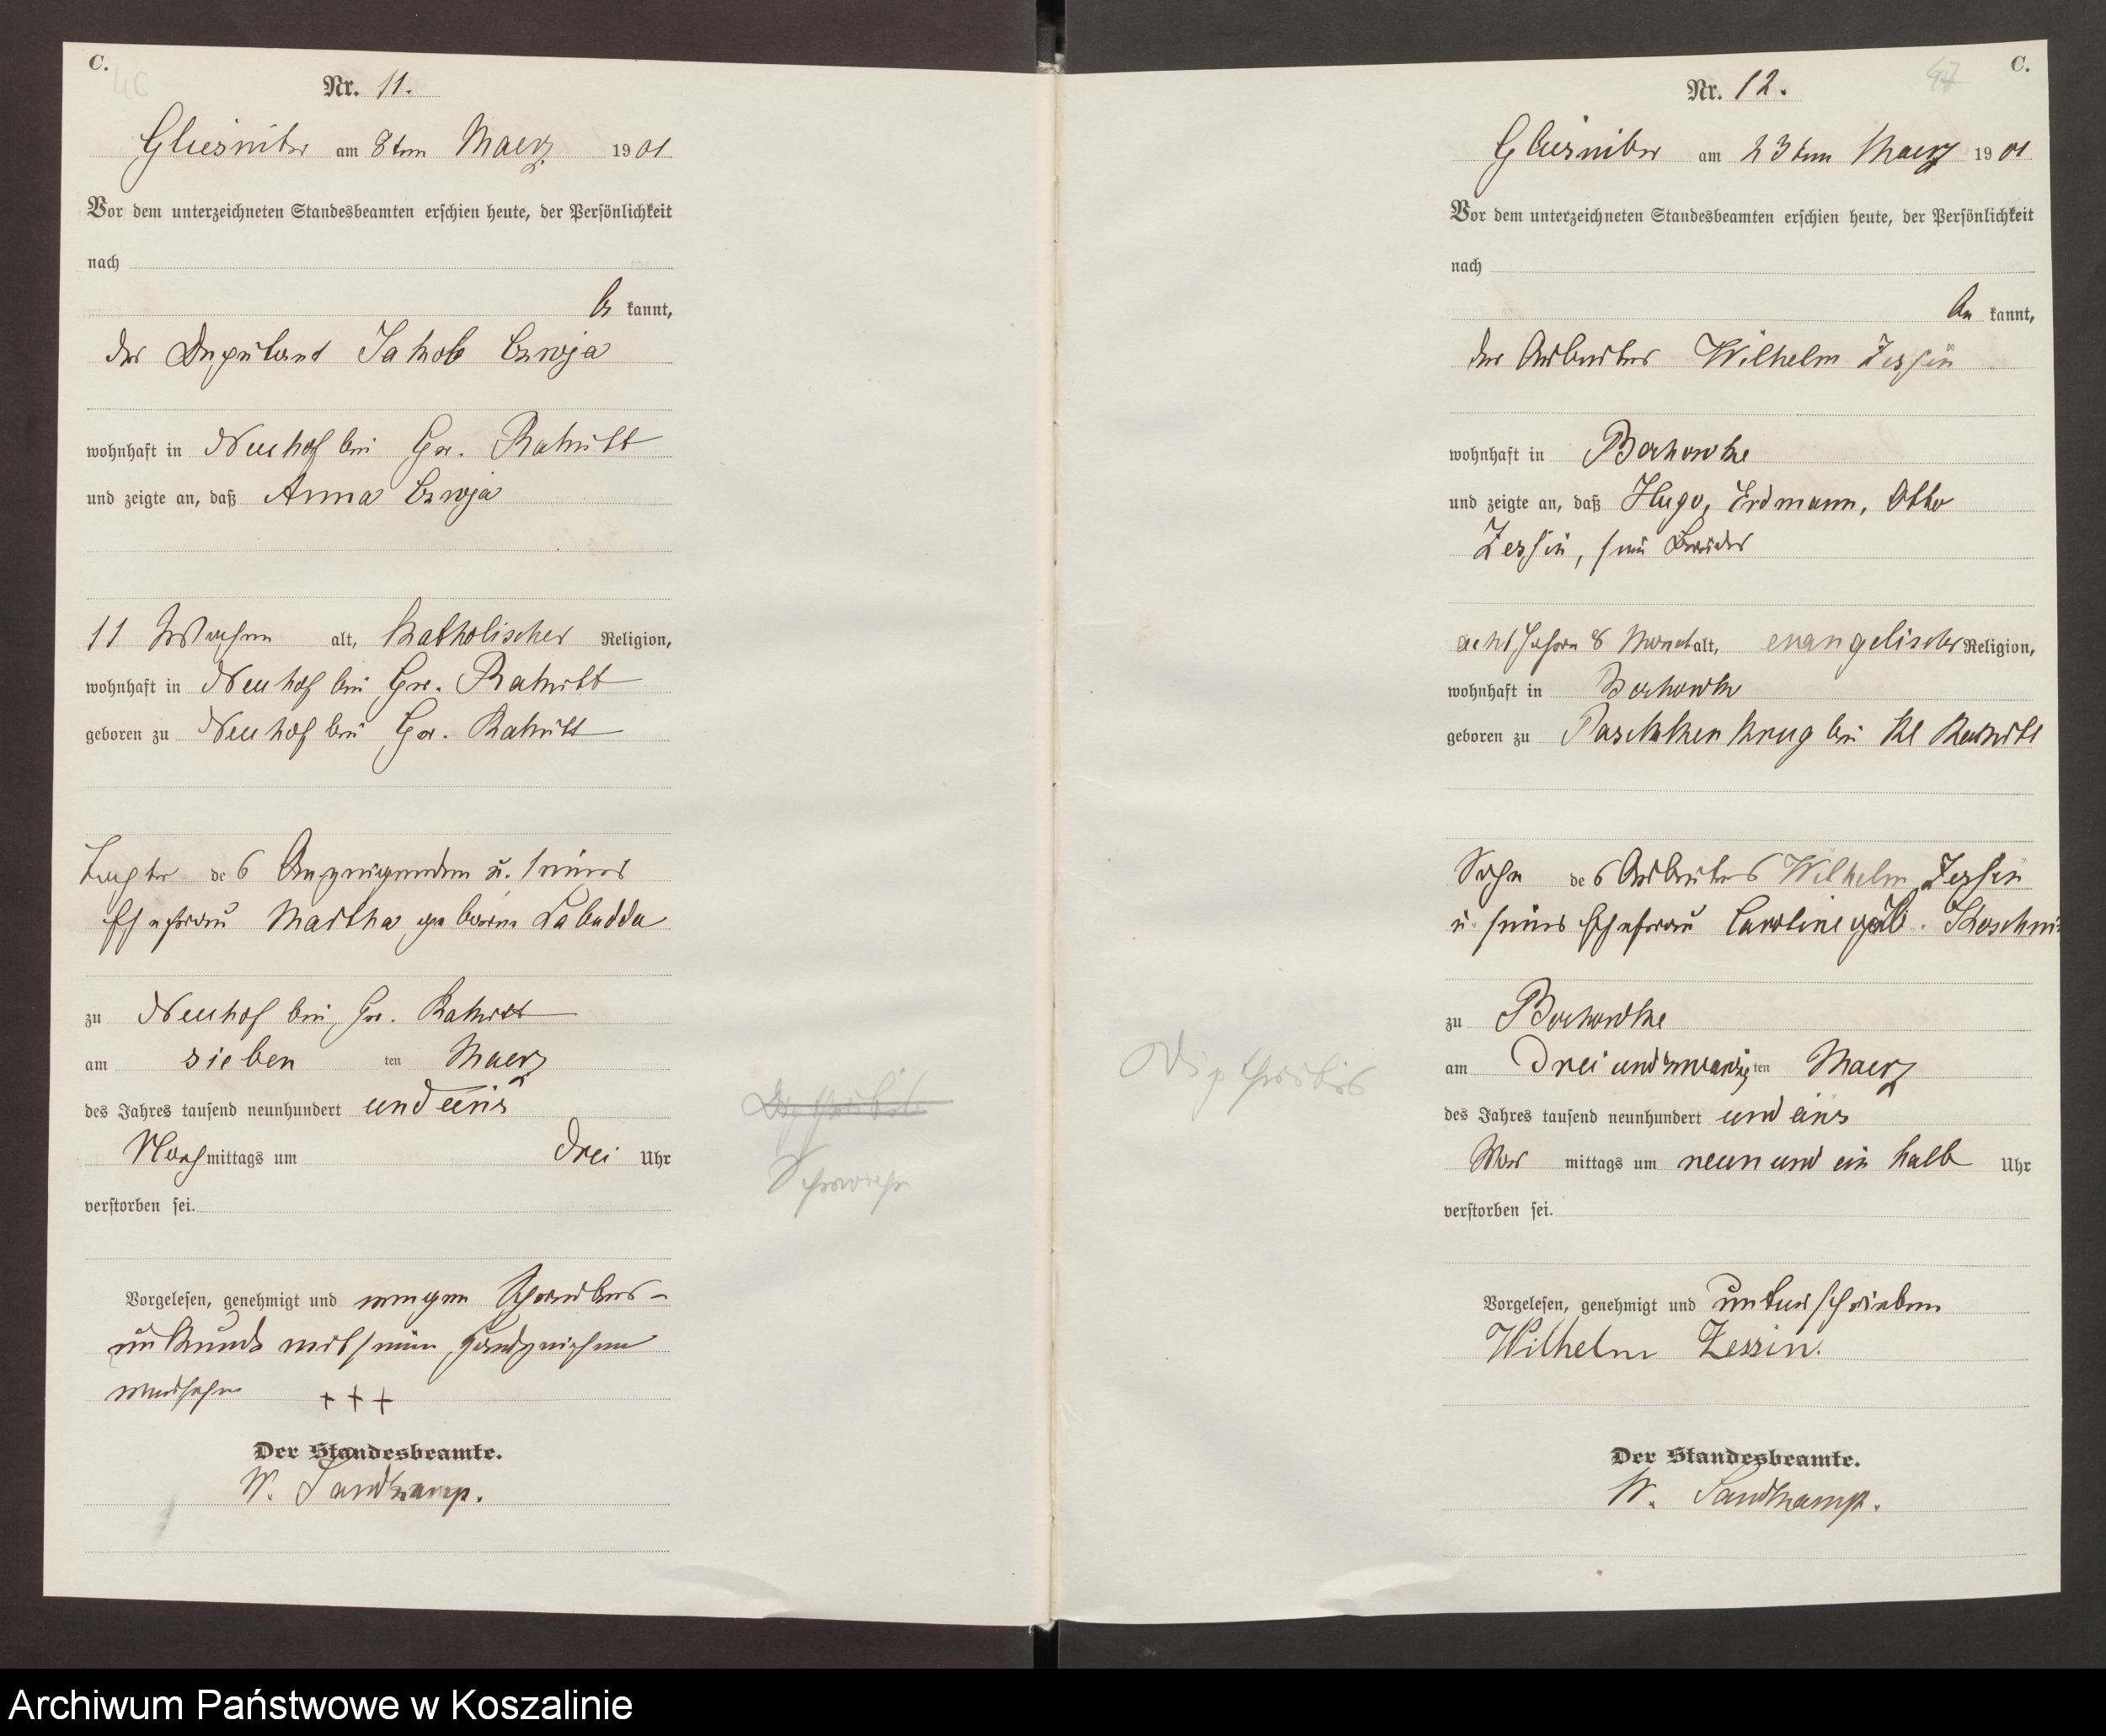 C.
46
Nr. 11.
Gliesnitz am 8ten Maerz 1901
Vor dem unterzeichneten Standesbeamten erschien heute, der Persönlichkeit
nach
be kannt,
der Deputant Jakob Czwoja
wohnhaft in Neuhof bei Gr. Rakitt
und zeigte an, daß Anna Czwoja
11 Wochen alt, Katholischer Religion,
wohnhaft in Neuhof bei Gr. Rakitt
geboren zu Neuhof bei Gr. Rakitt
Tochter des Anzeigenden u. seiner
Ehefrau Martha geborne Labudda
zu Neuhof bei Gr. Rakitt
am sieben ten Maerz
des Jahres tausend neunhundert und eins
Nachmittags um drei Uhr
verstorben sei.
Vorgelesen, genehmigt und wegen Schreibens-
unkunde mit seinen Handzeichen
versehen +++
Der Standesbeamte.
W. Sandkamp.
Diphtheritis
Schwäche
C.
47
Nr. 12.
Gliesnitz am 23ten Maerz 1901
Vor dem unterzeichneten Standesbeamten erschien heute, der Persönlichkeit
nach
be kannt,
der Arbeiter Wilhelm Zessin
wohnhaft in Bochowke
und zeigte an, daß Hugo, Erdmann, Otto
Zessin, sein Bruder
acht Jahre 8 Monat alt, evangelischer Religion,
wohnhaft in Bochowke
geboren zu Paschken Krug bei Kl Rakitt
Sohn des Arbeiters Wilhelm Zessin
u. seiner Ehefrau Caroline geb. Koschni
zu Bochowke
am Drei und zwanzig ten Maerz
des Jahres tausend neunhundert und eins
Vor mittags um neun und ein halb Uhr
verstorben sei.
Vorgelesen, genehmigt und unterschrieben
Wilhelm Zessin.
Der Standesbeamte.
W. Sandkamp.
Diphtheritis
Archiwum Państwowe w Koszalinie